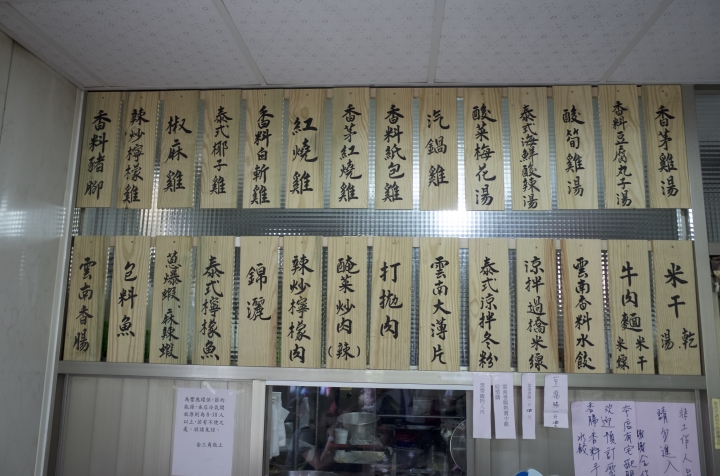 香茅雞湯
香料豆腐丸子湯
酸筍雞湯
泰式海鮮酸辣湯
酸菜梅花湯
汽鍋雞
香料紙包雞
香茅紅燒雞
紅燒雞
香料白斬雞
泰式椰子雞
椒麻雞
辣炒檸檬雞
香料豬腳
米干 乾 湯
牛肉麵 米干 米線
雲南香料水餃
涼拌過橋米線
泰式涼拌冬粉
雲南大薄片
打拋肉
醃菜炒肉(辣)
辣炒檸檬肉
錦灑
泰式檸檬魚
蔥爆蝦 麻辣蝦
包料魚
雲南香腸
非工作人員
請勿進入
本店有宅配
歡迎預訂
香腸香料
水餃